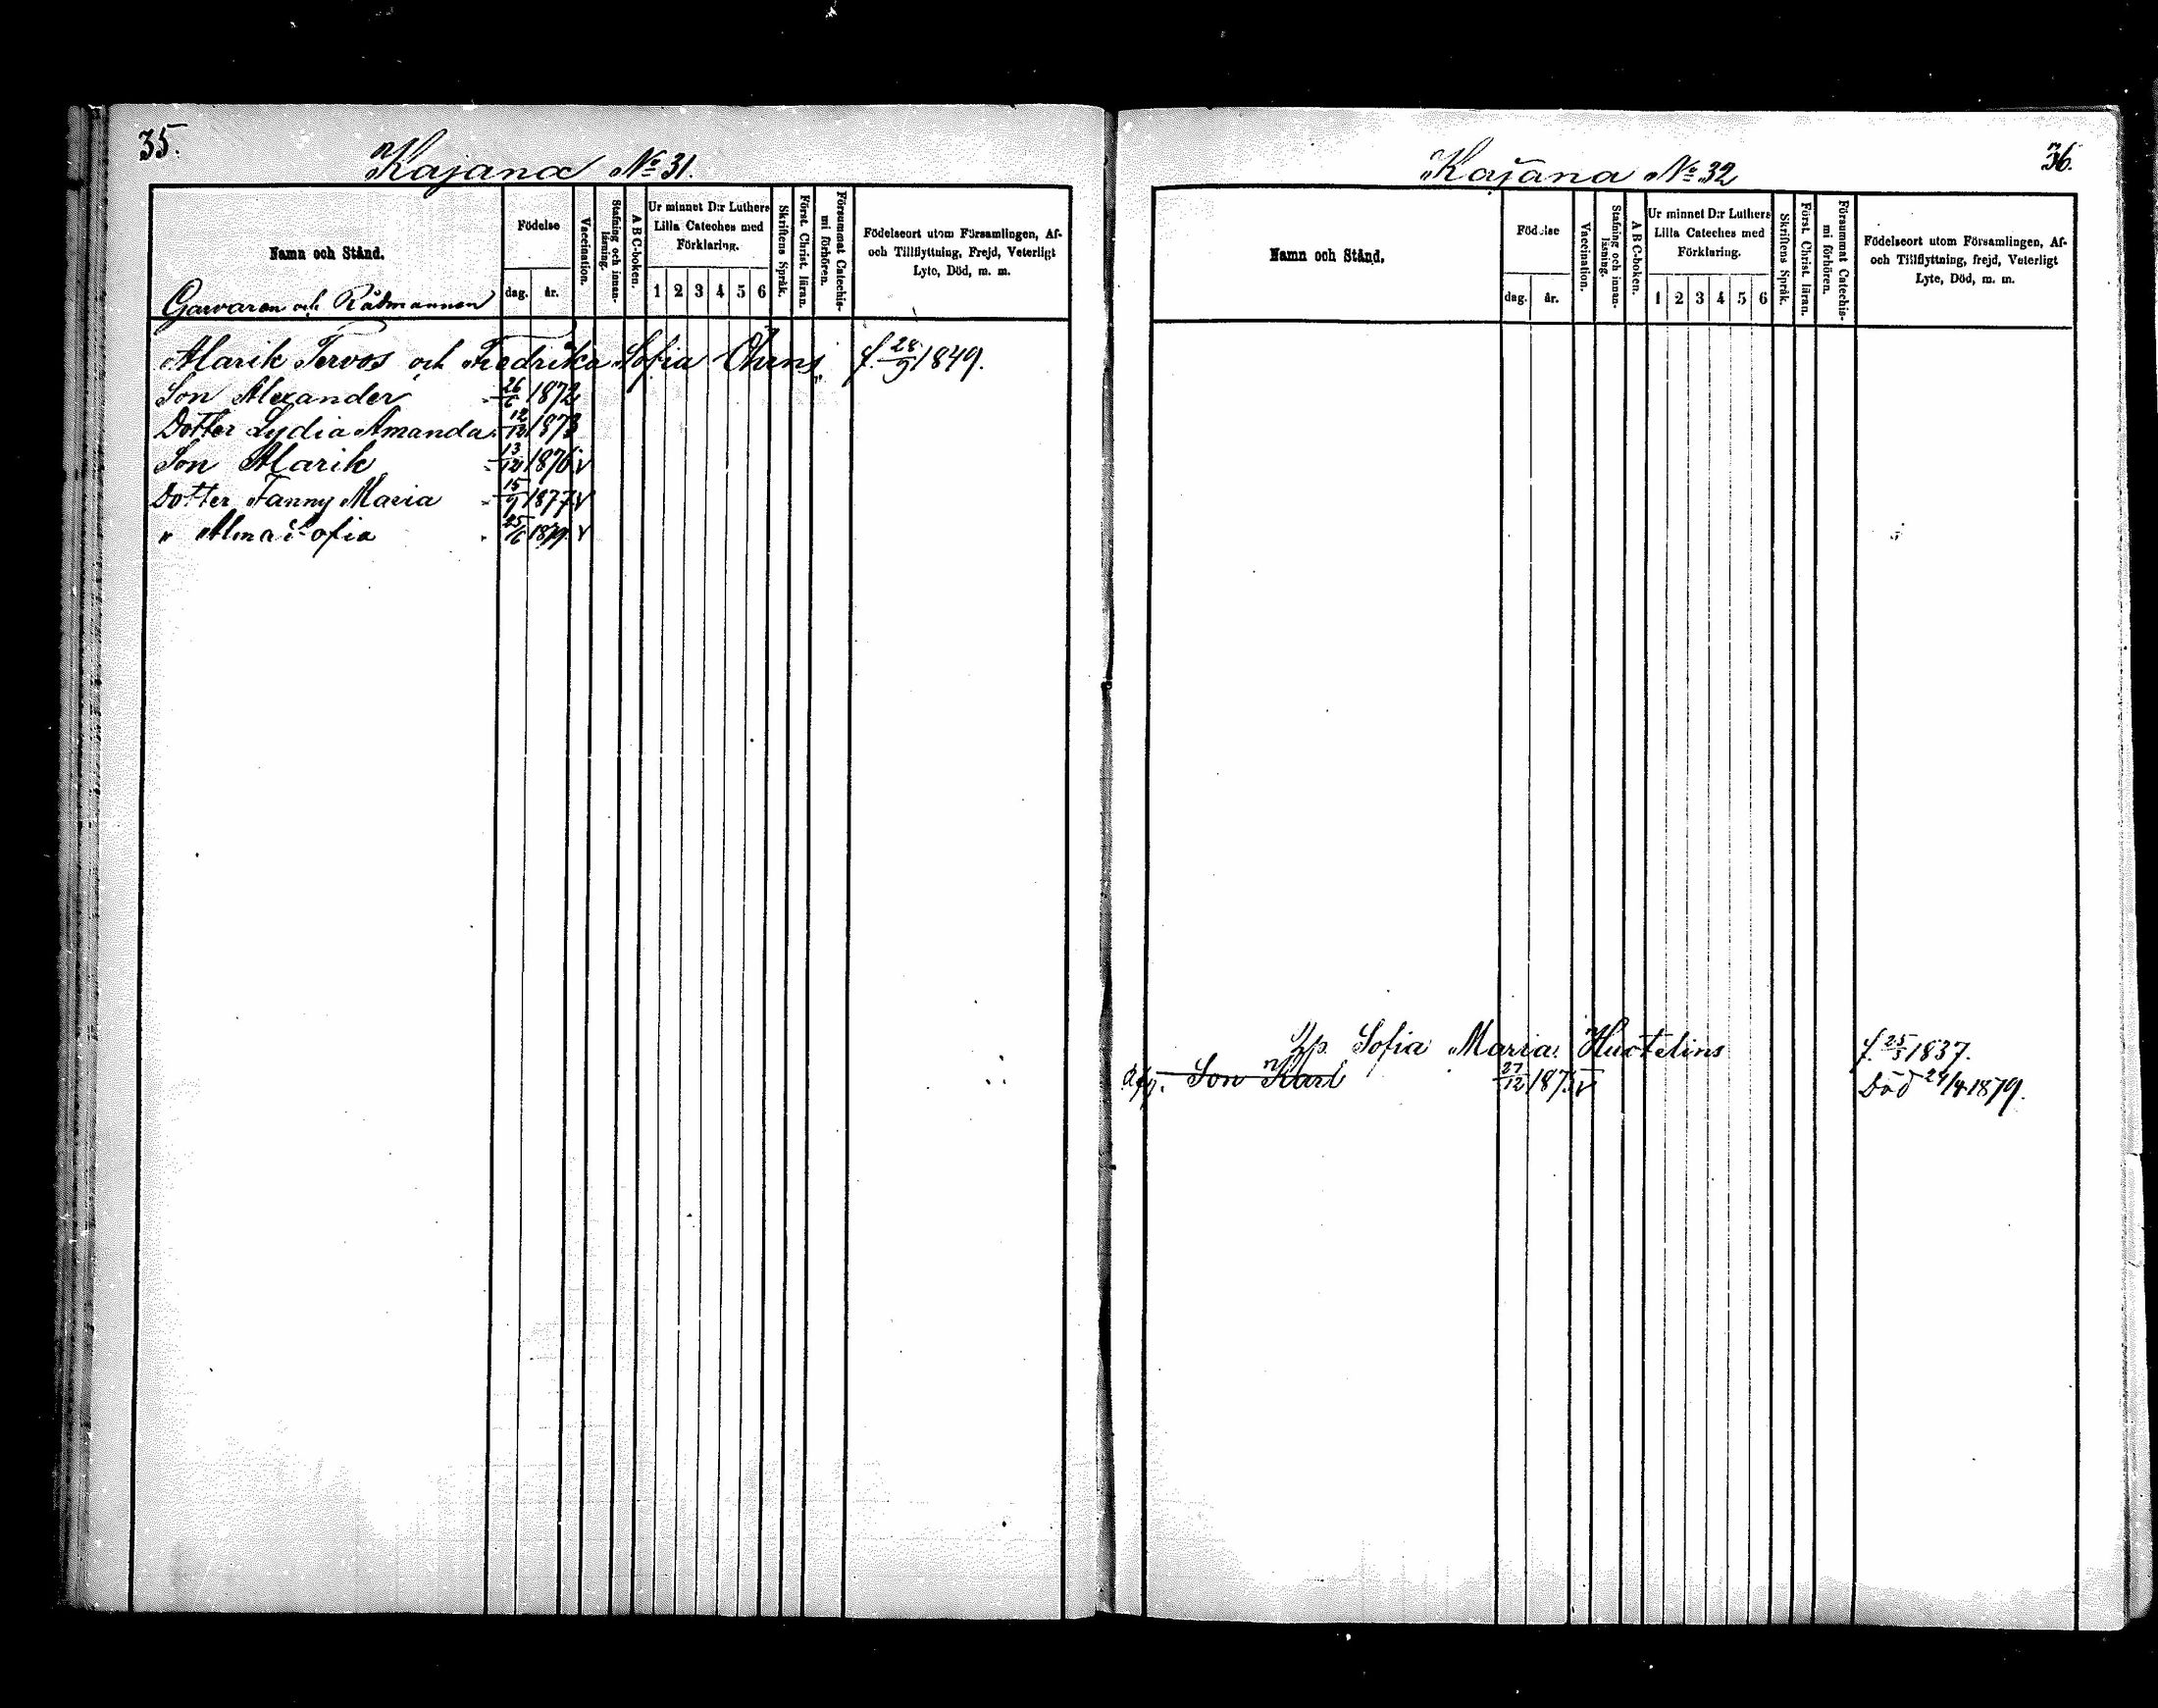 35.
Kajana No 31.
Namn och Stånd.
Födelse
dag. år.
Vaccination.
Stafning och innan-
läsning.
ABC-boken.
Ur minnet D:r Luthers
Lilla Cateches med
Förklaring.
1 2 3 4 5 6
Skriftens Språk.
Först. Christ. läran.
Försummat Catechis-
mi förhören.
Födelseort utom Församlingen, Af-
och Tillflyttning, Frejd, Veterligt
Lyte, Död, m. m.
Garvaren och Rådmannen
Alarik Tervos och Fredrika Sofia Öhrns f. 28/9 1849.
Son Alexander 26/6 1872
Dotter Lydia Amanda 12/12 1873
Son Alarik 13/12 1876 v
Dotter Fanny Maria 15/9 1877 v
" Alma Sofia 25/6 1879 v
36.
Kajana No 32
Namn och Stånd.
Födelse
dag. år.
Vaccination.
Stafning och innan-
läsning.
ABC-boken.
Ur minnet D:r Luthers
Lilla Cateches med
Förklaring.
1 2 3 4 5 6
Skriftens Språk.
Först. Christ. läran.
Försummat Catechis-
mi förhören.
Födelseort utom Församlingen, Af-
och Tillflyttning, frejd, Veterligt
Lyte, Död, m. m.
Sofia Maria Huotelins f. 25/3 1837.
Son Karl 27/12 1875 v Död 24/4 1879.